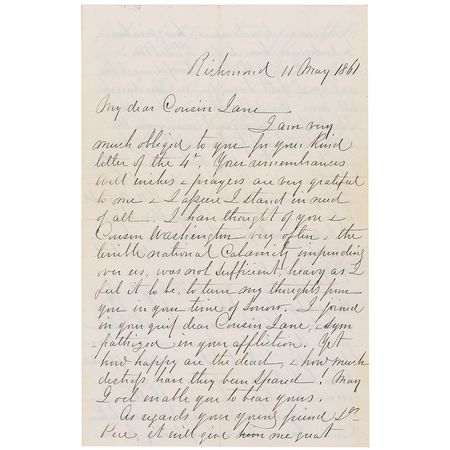 Richmond 11 May 1861
My dear Cousin Jane
I am very
much obliged to you for your kind
letter of the 4th Your remembrances
well wishes & prayers are very grateful
to me & I assure I stand in need
of all. I have thought of you &
Cousin Washington very often & the
terrible national Calamity impending
over us, was not sufficient, heavy as I
feel it to be, to turn my thoughts from
you in your time of sorrow. I joined
in your grief dear Cousin Jane, & sym
pathized in your affliction. Yet
how happy are the dead & how much
distress have they been spared! May
God enable you to bear yours.
As regards your young friend
it will give him me great